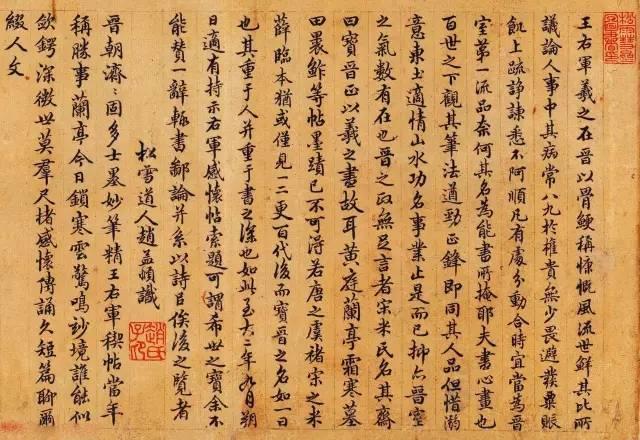 王右軍羲之在晉以骨鯁稱慷慨風流世鮮其比所
議論人事中其病常八九於權貴無少畏避發粟賑
飢上疏諍諫悉不阿順凡有處分動合時宜當為晉
室第一流品奈何其名為能書所掩耶夫書心畫也
百世之下觀其筆法遒勁正鋒即同其人品但惜溺
意東土適情山水功名事業止是而已抑亦晉室
之氣數有在也晉之政無足言者宋米氏名其齋
曰寶晉正以羲之書故耳黃庭蘭亭霜寒墓
田裹鮓等帖墨蹟已不可得若唐之虞褚宋之米
薛臨本猶或僅見一二更百代後而寶晉之名如一日
也其重于人并重于書之深也如此至大二年九月朔
日適有持示右軍感懷帖索題可謂希世之寶余不
能贊一辭輒書鄙論并系以詩㠯俟後之覽者
松雪道人趙孟頫識
晉朝濟〻固多士墨妙筆精王右軍稧帖當年
稱勝事蘭亭今日鎖寒雲驚鳴妙境誰能似
欽鍔深微世莫羣尺楮感懷傳誦久短篇聊爾
綴人文
趙氏子昂